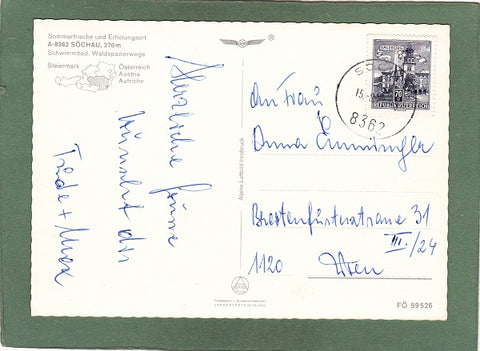 Sommerfrische und Erholungsort
A-8362 SÖCHAU, 270m
Schwimmbad, Waldspazierwege
Steiermark
Österreich
Austria
Autriche
Herzliche Grüsse
wünscht dir
Trude + Max
Alpine Luftbild Innsbruck
®
15.
8362
An Frau
Anna Emminger
Breitenfurterstrasse 31
III./24
1120 Wien
FÖ 59526